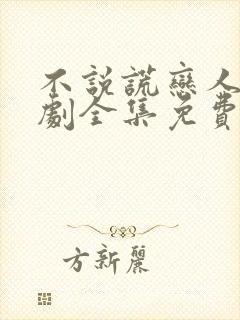 不説謊戀人
劇全集免費
方新麗